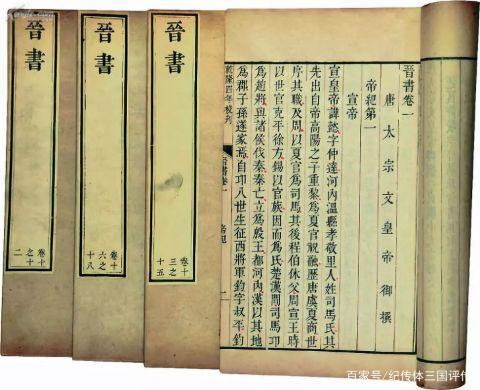 晉書卷一
唐太宗文皇帝御撰
帝紀第一
宣帝
宣皇帝諱懿字仲達河內溫縣孝敬里人姓司馬氏其
先出自帝高陽之子重黎爲夏官祝融歷唐虞夏商世
序其職及周以夏官爲司馬其後程伯休父周宣王時
以世官克平徐方錫以官族因而爲氏楚漢間司馬卬
爲趙將與諸侯伐秦秦亡立爲殷王都河內漢以其地
爲郡子孫遂家焉自卬八世生征西將軍鈞字叔平鈞
乾隆四年校刊
晉書卷一
晉書
卷十
三之
十五
晉書
卷十
六之
十八
晉書
卷十
之十
二
百家号/纪传体三国评